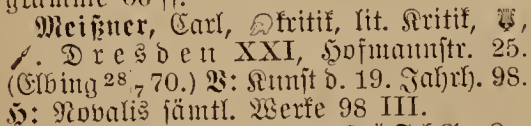 Meißner, Carl, Kritik, lit. Kritik,
Dresden XXI, Hofmannstr. 25.
(Elbing 28/7 70.) B: Kunst d. 19. Jahrh. 98.
H: Novalis sämtl. Werke 98 III.